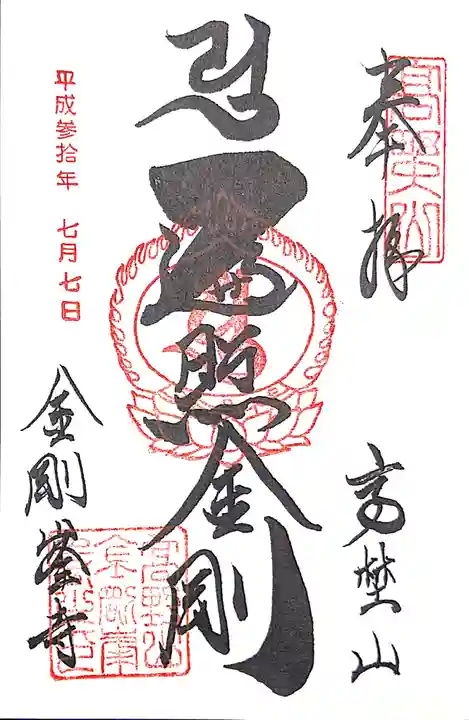 奉拝
高野山
遍照金剛
平成参拾年 七月七日
金剛峯寺